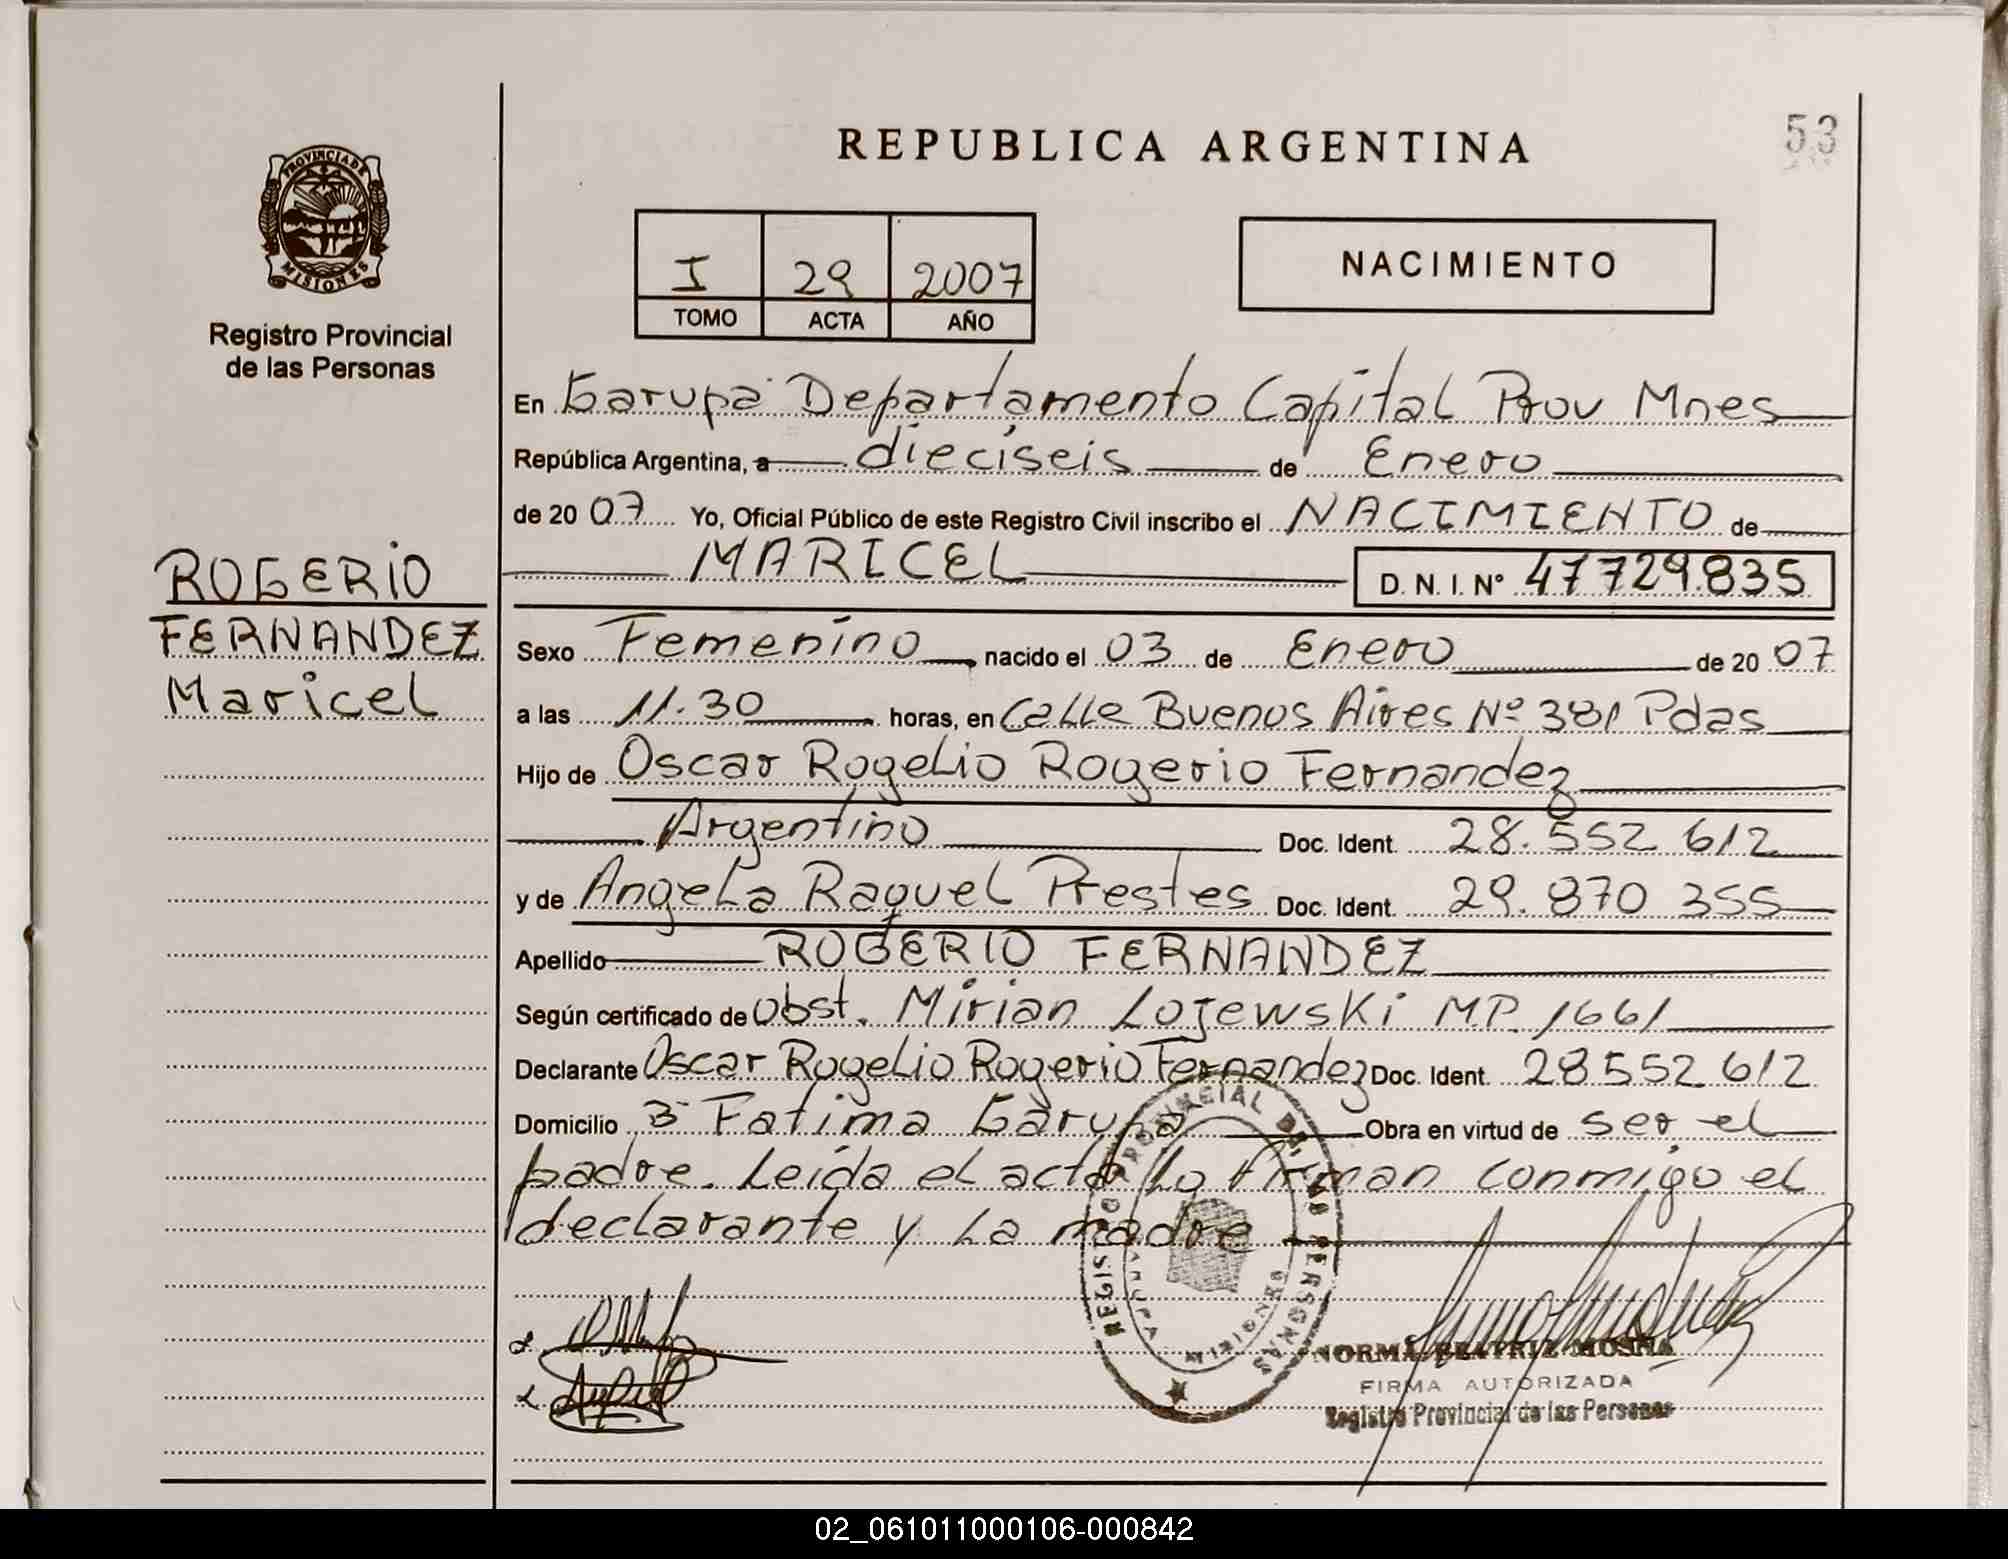 53
REPUBLICA ARGENTINA
PROVINCIA DE
MISIONES
Registro Provincial
de las Personas
I 29 2007
TOMO ACTA AÑO
NACIMIENTO
En Garupa Departamento Capital Prov Mnes
República Argentina, a dieciseis de Enero
de 20 07 Yo, Oficial Público de este Registro Civil inscribo el NACIMIENTO de
MARICEL D. N. I. Nº 47729.835
ROGERIO
FERNANDEZ
Maricel
Sexo Femenino, nacido el 03 de Enero de 20 07
a las 11.30 horas, en Calle Buenos Aires Nº 381 Pdas
Hijo de Oscar Rogelio Rogerio Fernandez
Argentino Doc. Ident. 28.552 612
y de Angela Raquel Prestes Doc. Ident. 29.870 355
Apellido ROGERIO FERNANDEZ
Según certificado de Obst. Mirian Lojewski M.P. 1661
Declarante Oscar Rogelio Rogerio Fernandez Doc. Ident. 28552 612
Domicilio Bº Fatima Garupa Obra en virtud de ser el
padre. Leida el acta lo firman conmigo el
declarante y la madre
REGISTRO PROVINCIAL DE LAS PERSONAS
GARUPA MISIONES
NORMA BEATRIZ
FIRMA AUTORIZADA
Registro Provincial de las Personas
02_061011000106-000842